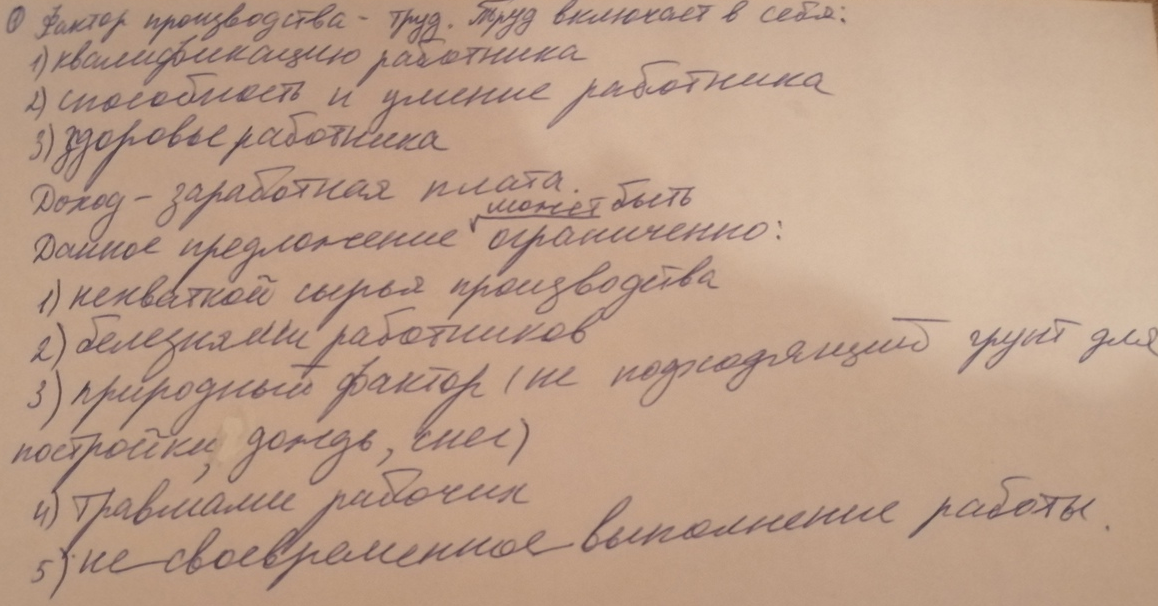 ① Фактор производства - труд. Труд включает в себя:
1) квалификацию работника
2) способность и умение работника
3) здоровье работника
Доход - заработная плата.
может быть
Данное предложение √ ограниченно:
1) нехваткой сырья производства
2) белезнями работников
3) природный фактор (не подходящий грунт для
постройки, дождь, снег)
4) травмами рабочих
5) не своевременное выполнение работы.